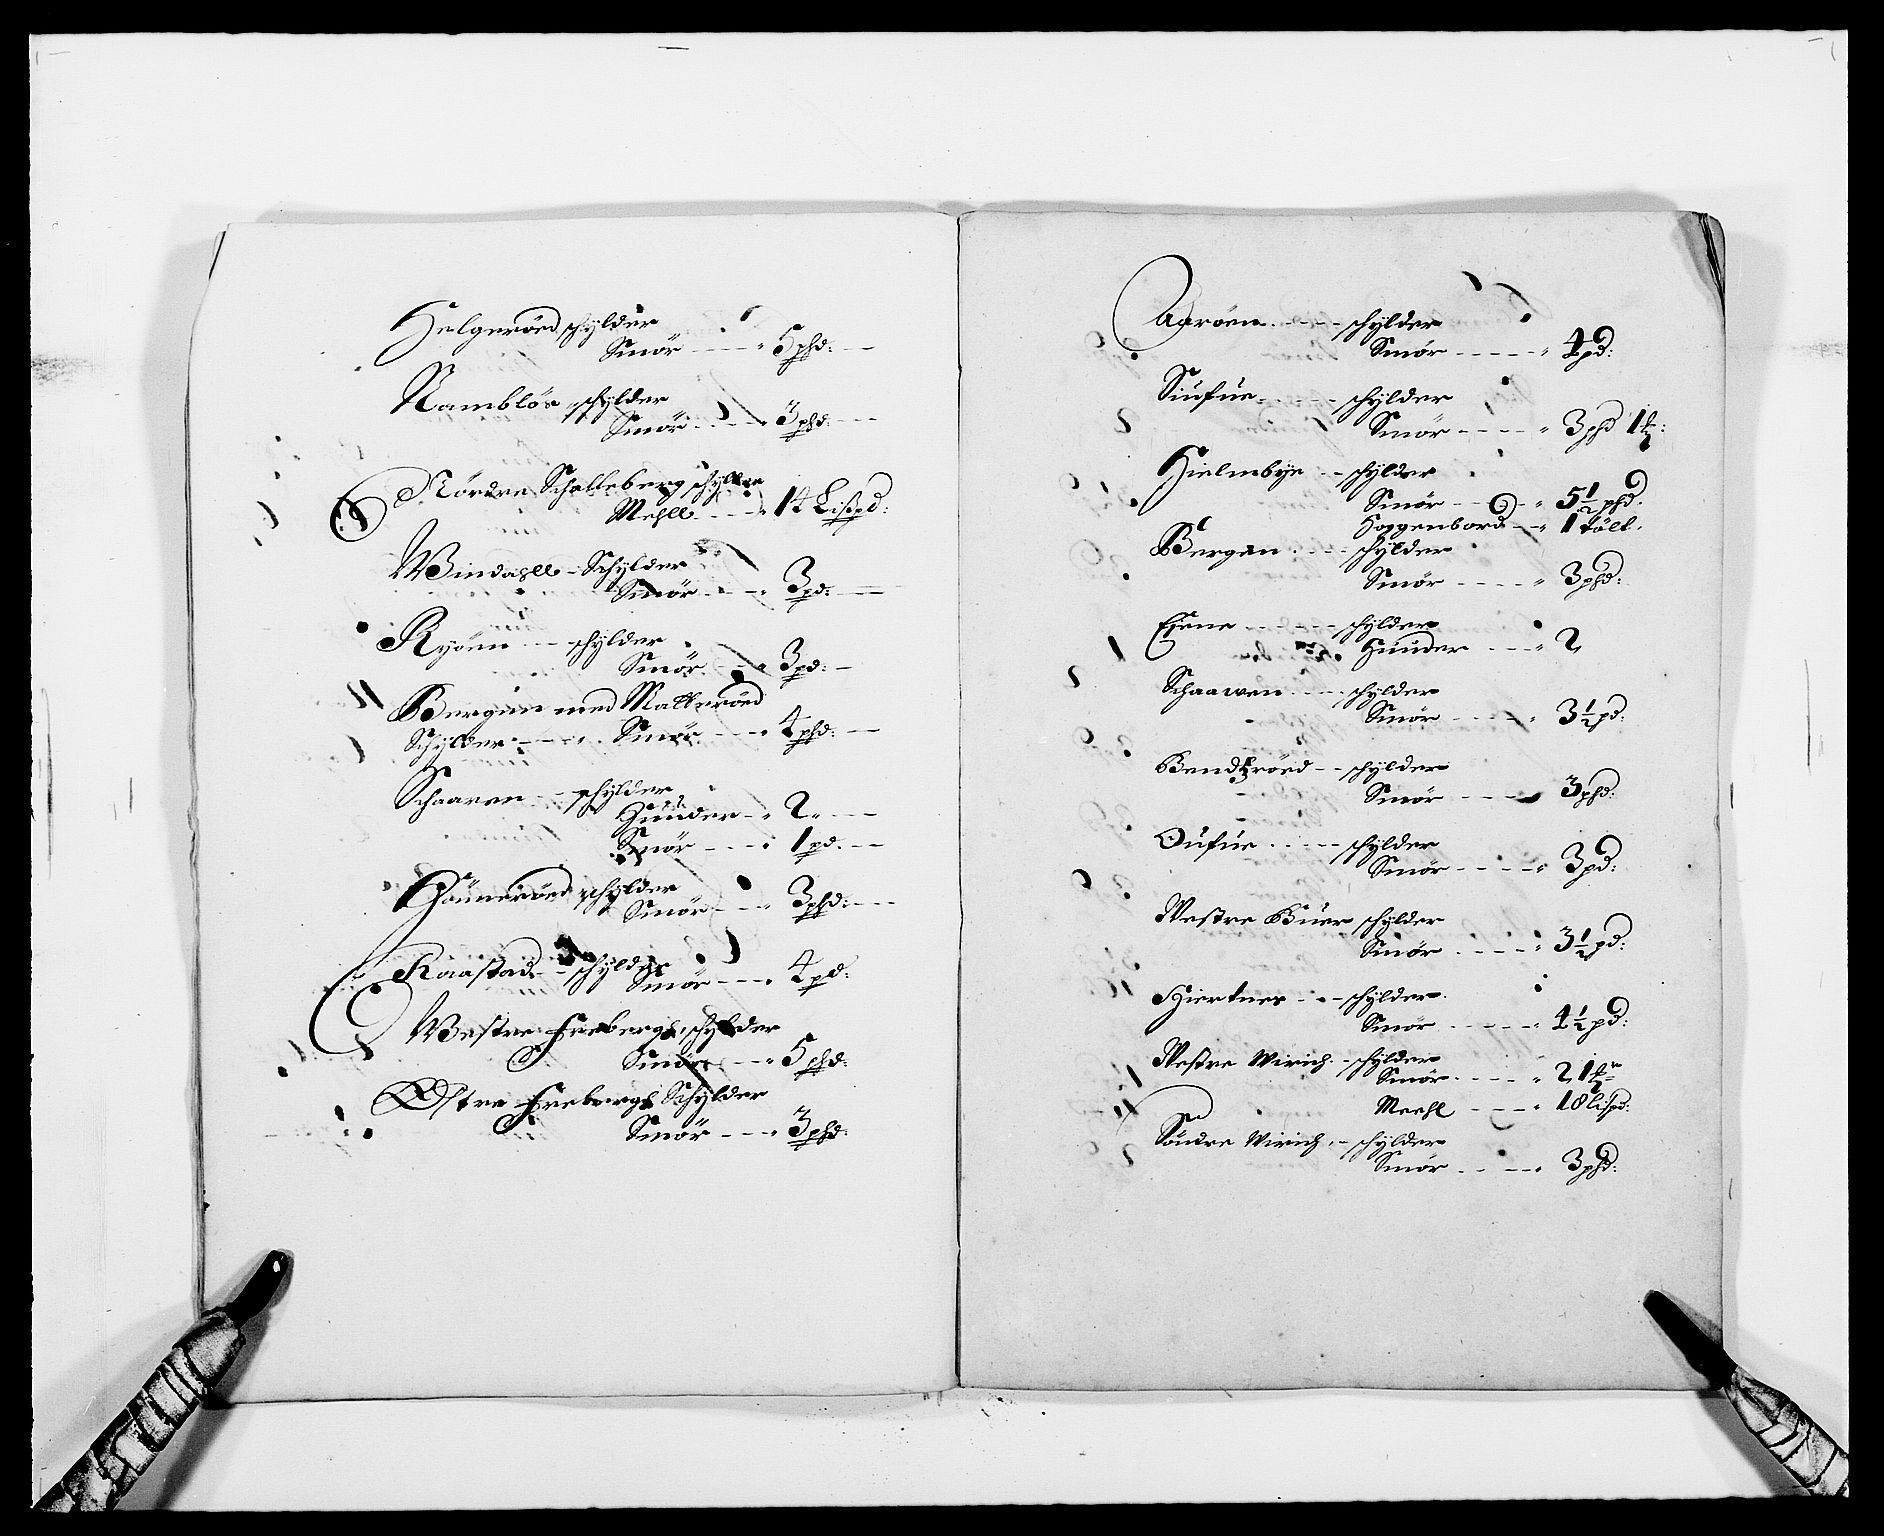 Helgeröed schylder
Smör - - - " 5 phd: -
Namblös - schylder
Smör - - - " 3 phd: -
Nördre Schalleberg schylder
Mehll - - - " 14 Lispd:
Windahll - Schylder
Smör - - - " 3 pd: -
Ryöen - - schylder
Smör - - - " 3 pd: -
Bergun med Malleröed
Schylder - - - Smör - - - " 4 phd: -
Schaaren - - schylder
Huuder - " 2 " -
Smör - - - " 1 pd: -
Gouneröed schylder
Smör - - - " 3 phd: -
Raastad - - schylder
Smör - - - " 4 pd:
Westre Frebergh schylder
Smör - - - " 5 phd:
Östre Frebergh Schylder
Smör - - - " 3 phd:
Aaröen - - - schylder
Smör - - - - " 4 pd:
Siufue - - - schylder
Smör - - - - " 3 phd 1
Hielmbye - - schylder
Smör - - - " 5 1/2 phd:
Hoggenbord - - " 1 tölt.
Bergan - - - schylder
Smör - - - - " 3 phd:
Eiene - - - - schylder
Huuder - - - " 2
Schaawen - - - schylder
Smör - - - - " 3 1/2 pd:
Bendtzröed - - schylder
Smör - - - 3 phd:
Oufue - - - schylder
Smör - - - - " 3 pd:
Westre Buer schylder
Smör - - - - " 3 1/2 pd:
Hiertnes - - - schylder
Smör - - - - " 4 1/2 pd:
Westre Wirich - schylder
Smör - - - - " 21
Meehl - - - " 18 lispd:
Söndre Wirich - - schylder
Smör - - - - " 3 phd: